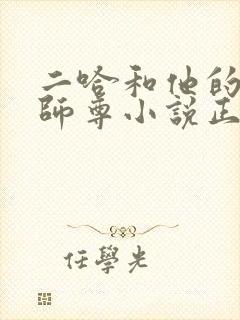 二哈和他的
師尊小說正
任學光